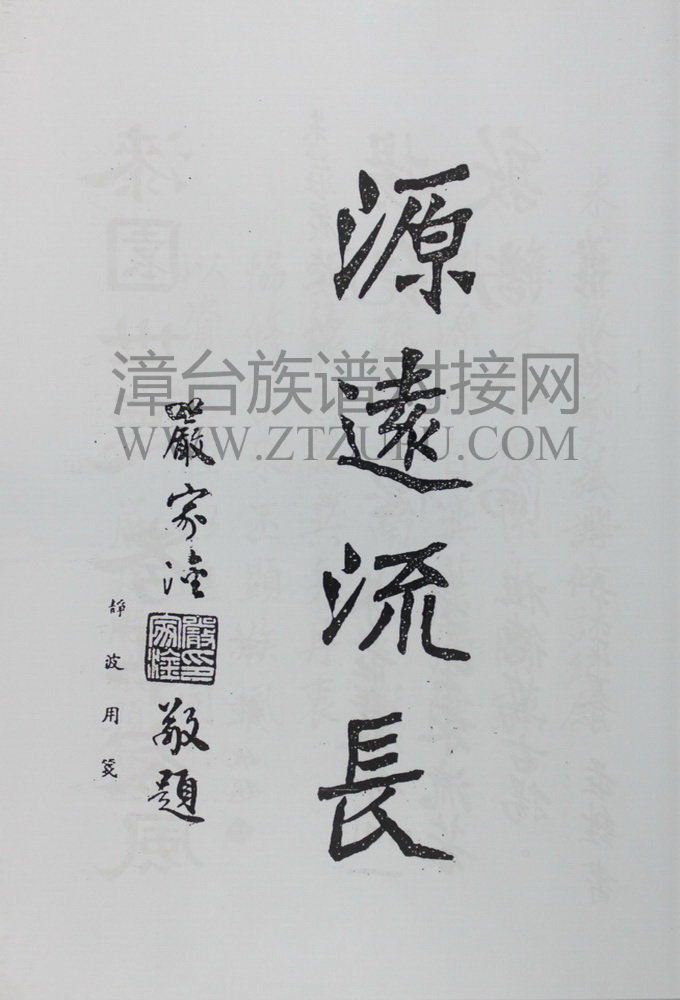 源遠流長
嚴家淦
嚴家淦印
敬題
靜波用箋
漳台族谱对接网
WWW.ZTZUPU.COM